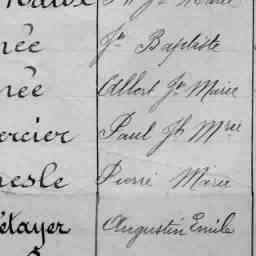 née Jn Baptiste
née Albert Jn Marie
ercier Paul Jh Mrie
esle Pierre Marie
étayer Augustin Emile